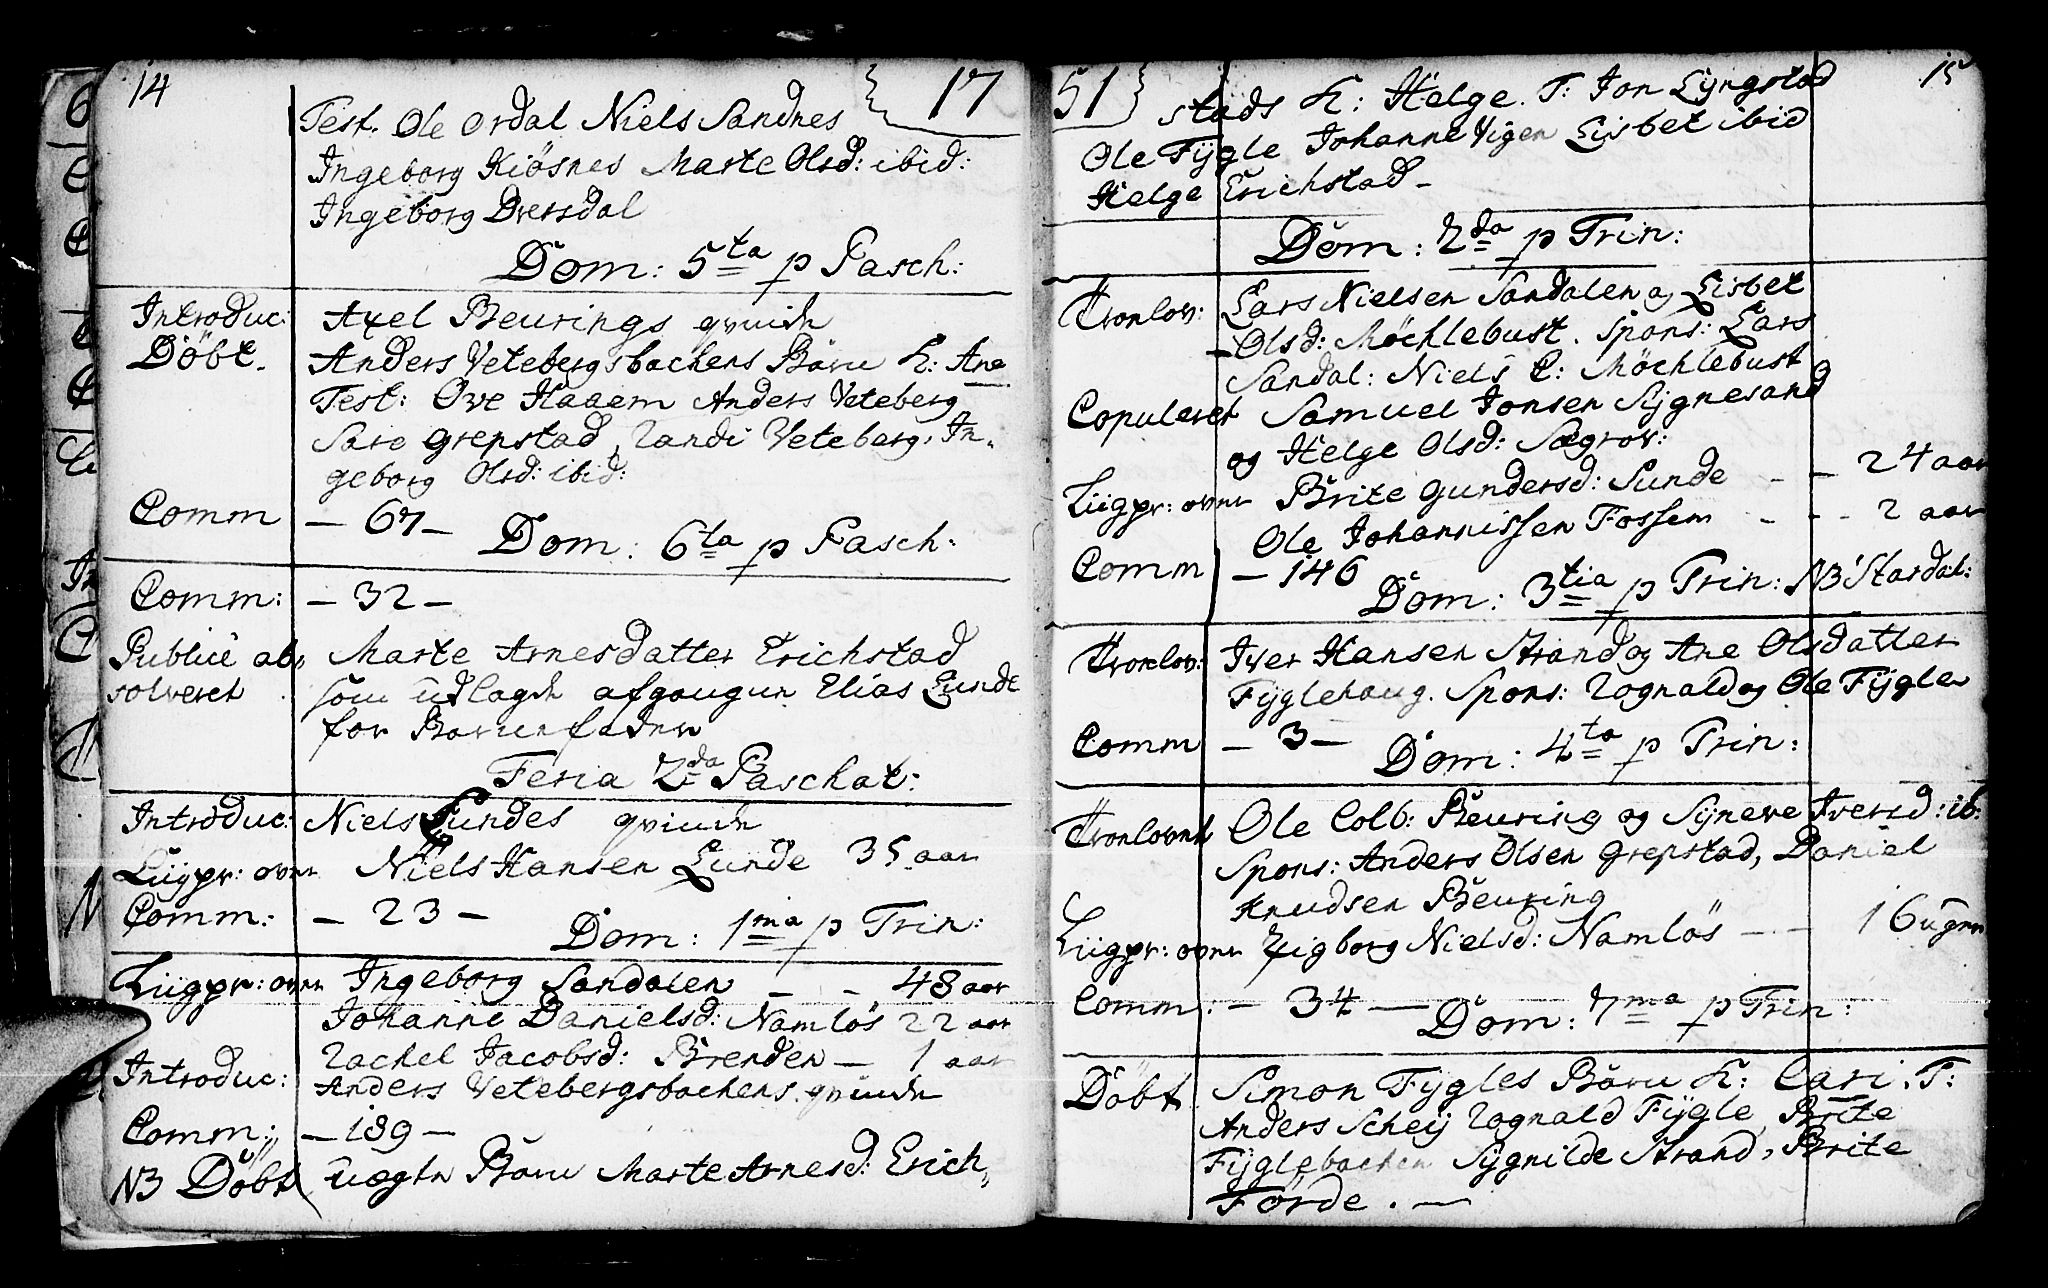 14
17
Test. Ole Ordal Niels Sandnes
Ingeborg Kiösnes Marte Olsd: ibid:
Ingeborg Dversdal
Dom: 5ta p Pasch:
Introduc: Axel Beurings qvinde
Döbt. Anders Vetebergsbachens Barn K: Ane
Test: Ove Haaem Anders Veteberg
Sara Grepstad, Randi Veteberg, In-
geborg Olsd: ibid:
Comm — 67 —
Dom: 6ta p Pasch:
Comm: — 32 —
Publice ab- Marte Arnesdatter Erichstad
solveret som udlagde afgangne Elias Lunde
for Barnefader
Feria 2da Paschat:
Introduc: Niels Lundes qvinde
Liigpr: over Niels Hansen Lunde 35 aar
Comm: — 23 —
Dom: 1ma p Trin:
Liigpr: over Ingeborg Sandalen — - 48 aar
Johanne Danielsd: Namlös 22 aar
Rachel Jacobsd: Brenden — 1 aar
Introduc: Anders Vetebergsbachens qvinde
Comm: — 189 —
NB Döbt uægte Barn Marte Arnesd: Erich-
51
15
stads K: Helge. T: Jon Lyngstad
Ole Fÿgle Johanne Vigen Lisbet ibid
Helge Erichstad -
Dom: 2da p Trin:
Tronlov: Lars Nielsen Sandalen og Lisbet
Olsd: Möchlebust. Spons: Lars
Sandal: Niels C: Möchlebust
Copuleret Samuel Jonsen Sÿgnesand
og Helge Olsd: Sægrov:
Liigpr: over Brite Gundersd: Sunde - - 24 aar
Ole Johannissen Fossem - - - 2 aar
Comm — 146
Dom: 3tia p Trin: NB Stardal:
Tronlov: Iver Hansen Strand og Ane Olsdatter
Fÿglehaug. Spons: Rognald og Ole Fÿgle
Comm — 3 —
Dom: 4ta p Trin:
Tronlovet Ole Colb: Beuring og Sÿneve Iversd: ib:
Spons: Anders Olsen Grepstad, Daniel
Knudsen Beuring
Liigpr: over Zigborg Nielsd: Namlös — - 16 uger
Comm: — 34 —
Dom: 7ma p Trin:
Döbt Simon Fÿgles Barn K: Cari. T:
Anders Scheÿ Rognald Fÿgle Brite
Fÿglebachen Sÿgnilde Strand, Brite
Förde. —